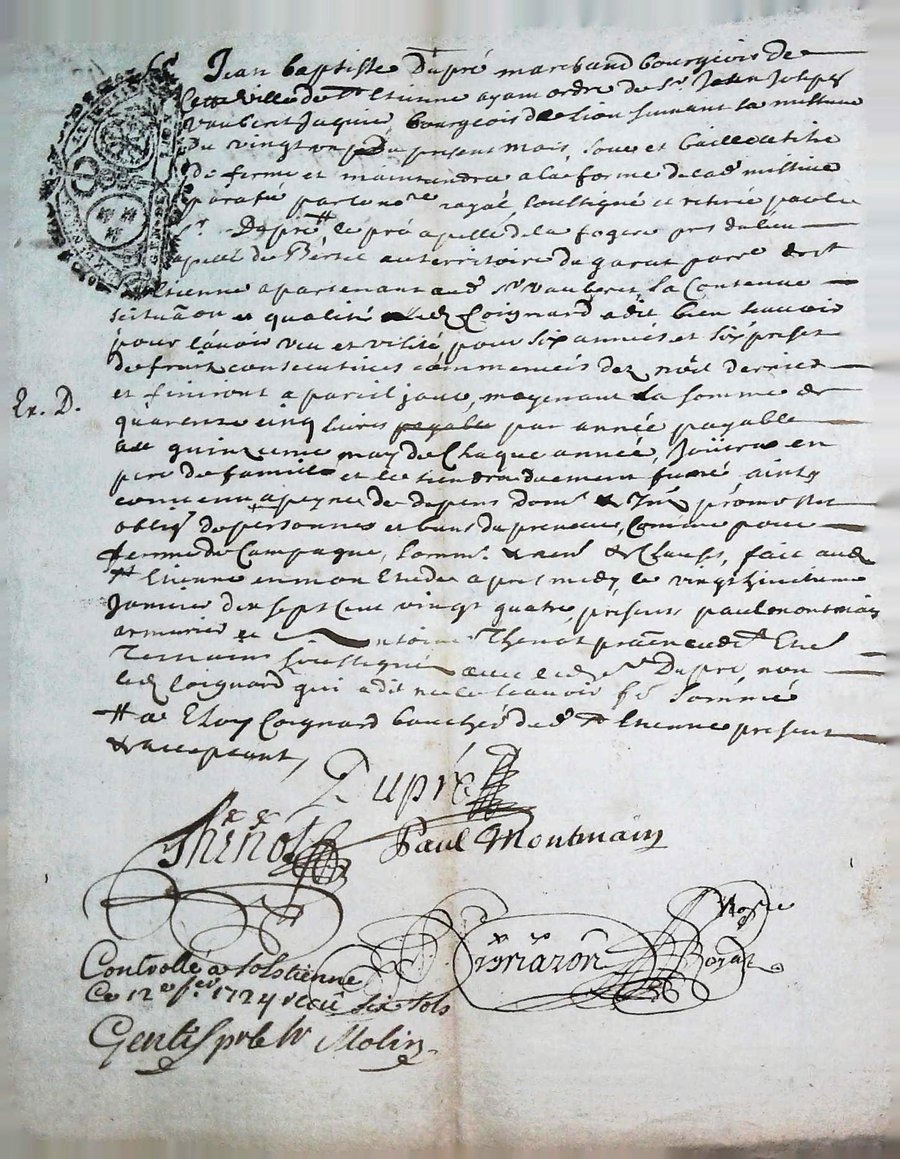 Sr Jean baptiste Dupré marchand bourgeois de
cette ville de St Etienne ayant ordre de Sr Jean Joseph
Vaubert Jaquier bourgeois de lion suivant la missive
du vingt du present mois, loue et baille a titre
de ferme et maintendra a la forme de lad missive
parafée par le nore royal soussigné et retirée par le
Sr Dupré # le pré apellé de la fogere pres du lieu
apellé du Bersel au territoire du garat parre dud St
Etienne apartenant aud Sr Vaubert sa Contenue
situãon et qualité led Coignard a dit bien scavoir
pour l'avoir vu et visité pour six années et six prises
de fruits consecutives cõmencées dez noël dernier
et finiront a pareil jour, moyenant la somme de
Ex. D.
quarente cinq livres par année payable
au quinzeme may de Chaque année, Joüira en
pere de famille et le tiendra duement fumé, ainsy
convenu a peyne de depens dom. & Int promettes
oblig de personnes et biens du preneur, Comme pour
ferme de Campagne, soum. & ren. & Clauses, fait aud
St Etienne en mon Etude apres midy le vingt huitieme
Janvier dix sept cent vingt quatre, presents paul montmain
armurier et Antoine Thenot praticien aud St Etien
Temoins soussignés avec led Sr Dupré non
led Coignard qui a dit ne le scavoir fe sommé
# a Eloy Coignard boucher dud St Etienne present
& acceptant,
Dupré
Thénot
Paul Montmain
Nore
Royal
Controllé a St Etienne
Ce 12e fer. 1724 receu six sols
Gentil pr le Sr Molin